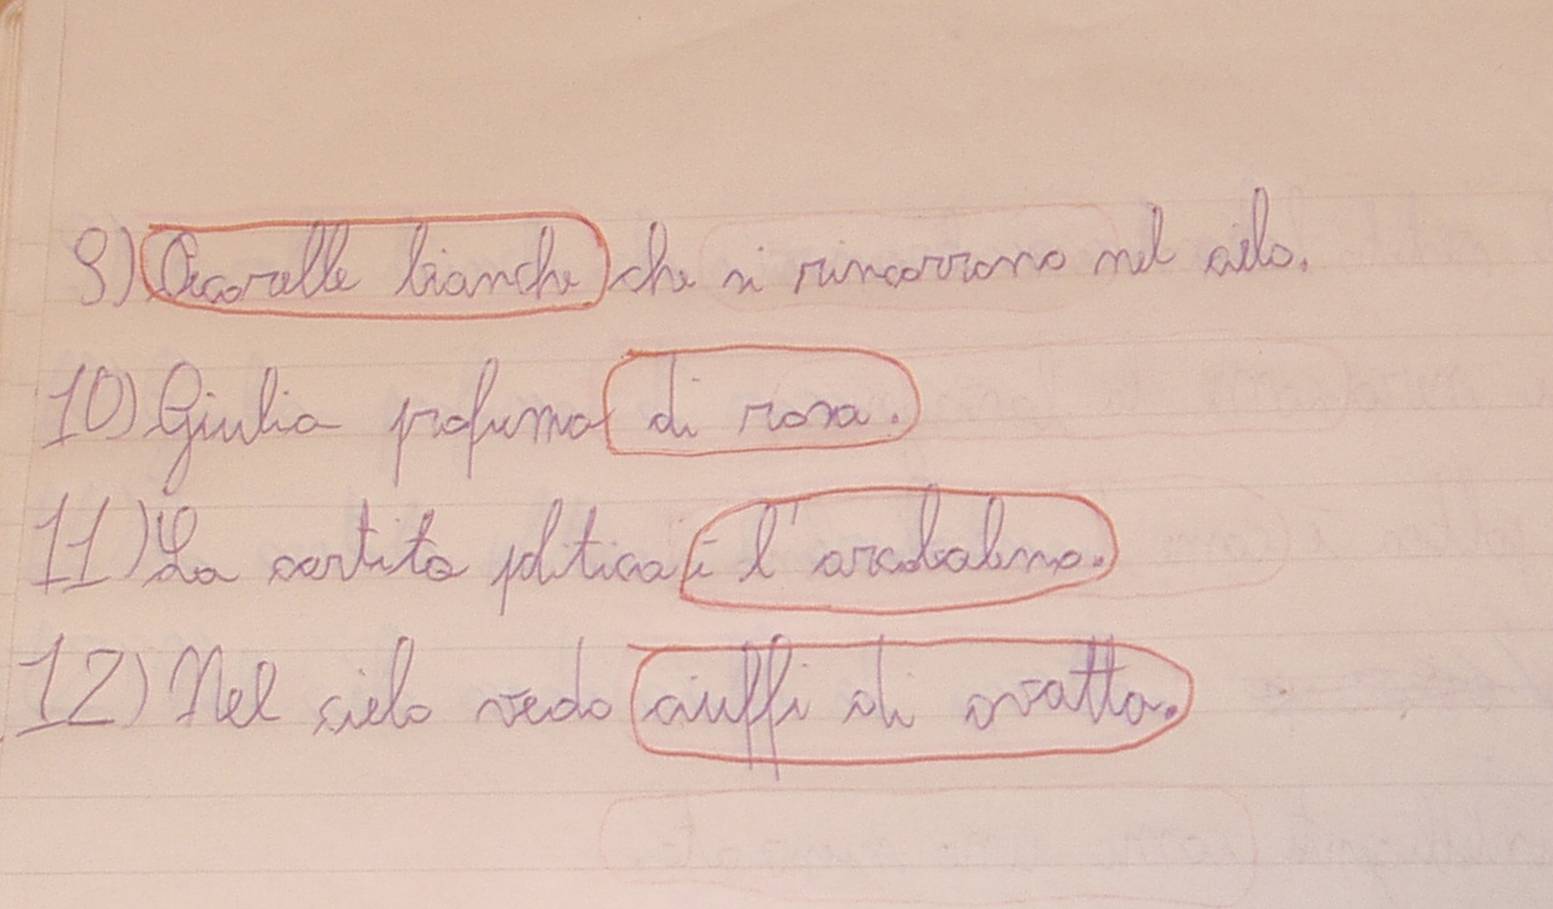 9) Pecorelle bianche che si rincorrono nel cielo.
10) Giulia profuma di rosa.
11) La cartita politica è l'arcobaleno.
12) Nel cielo vedo ciuffi di ovatta.